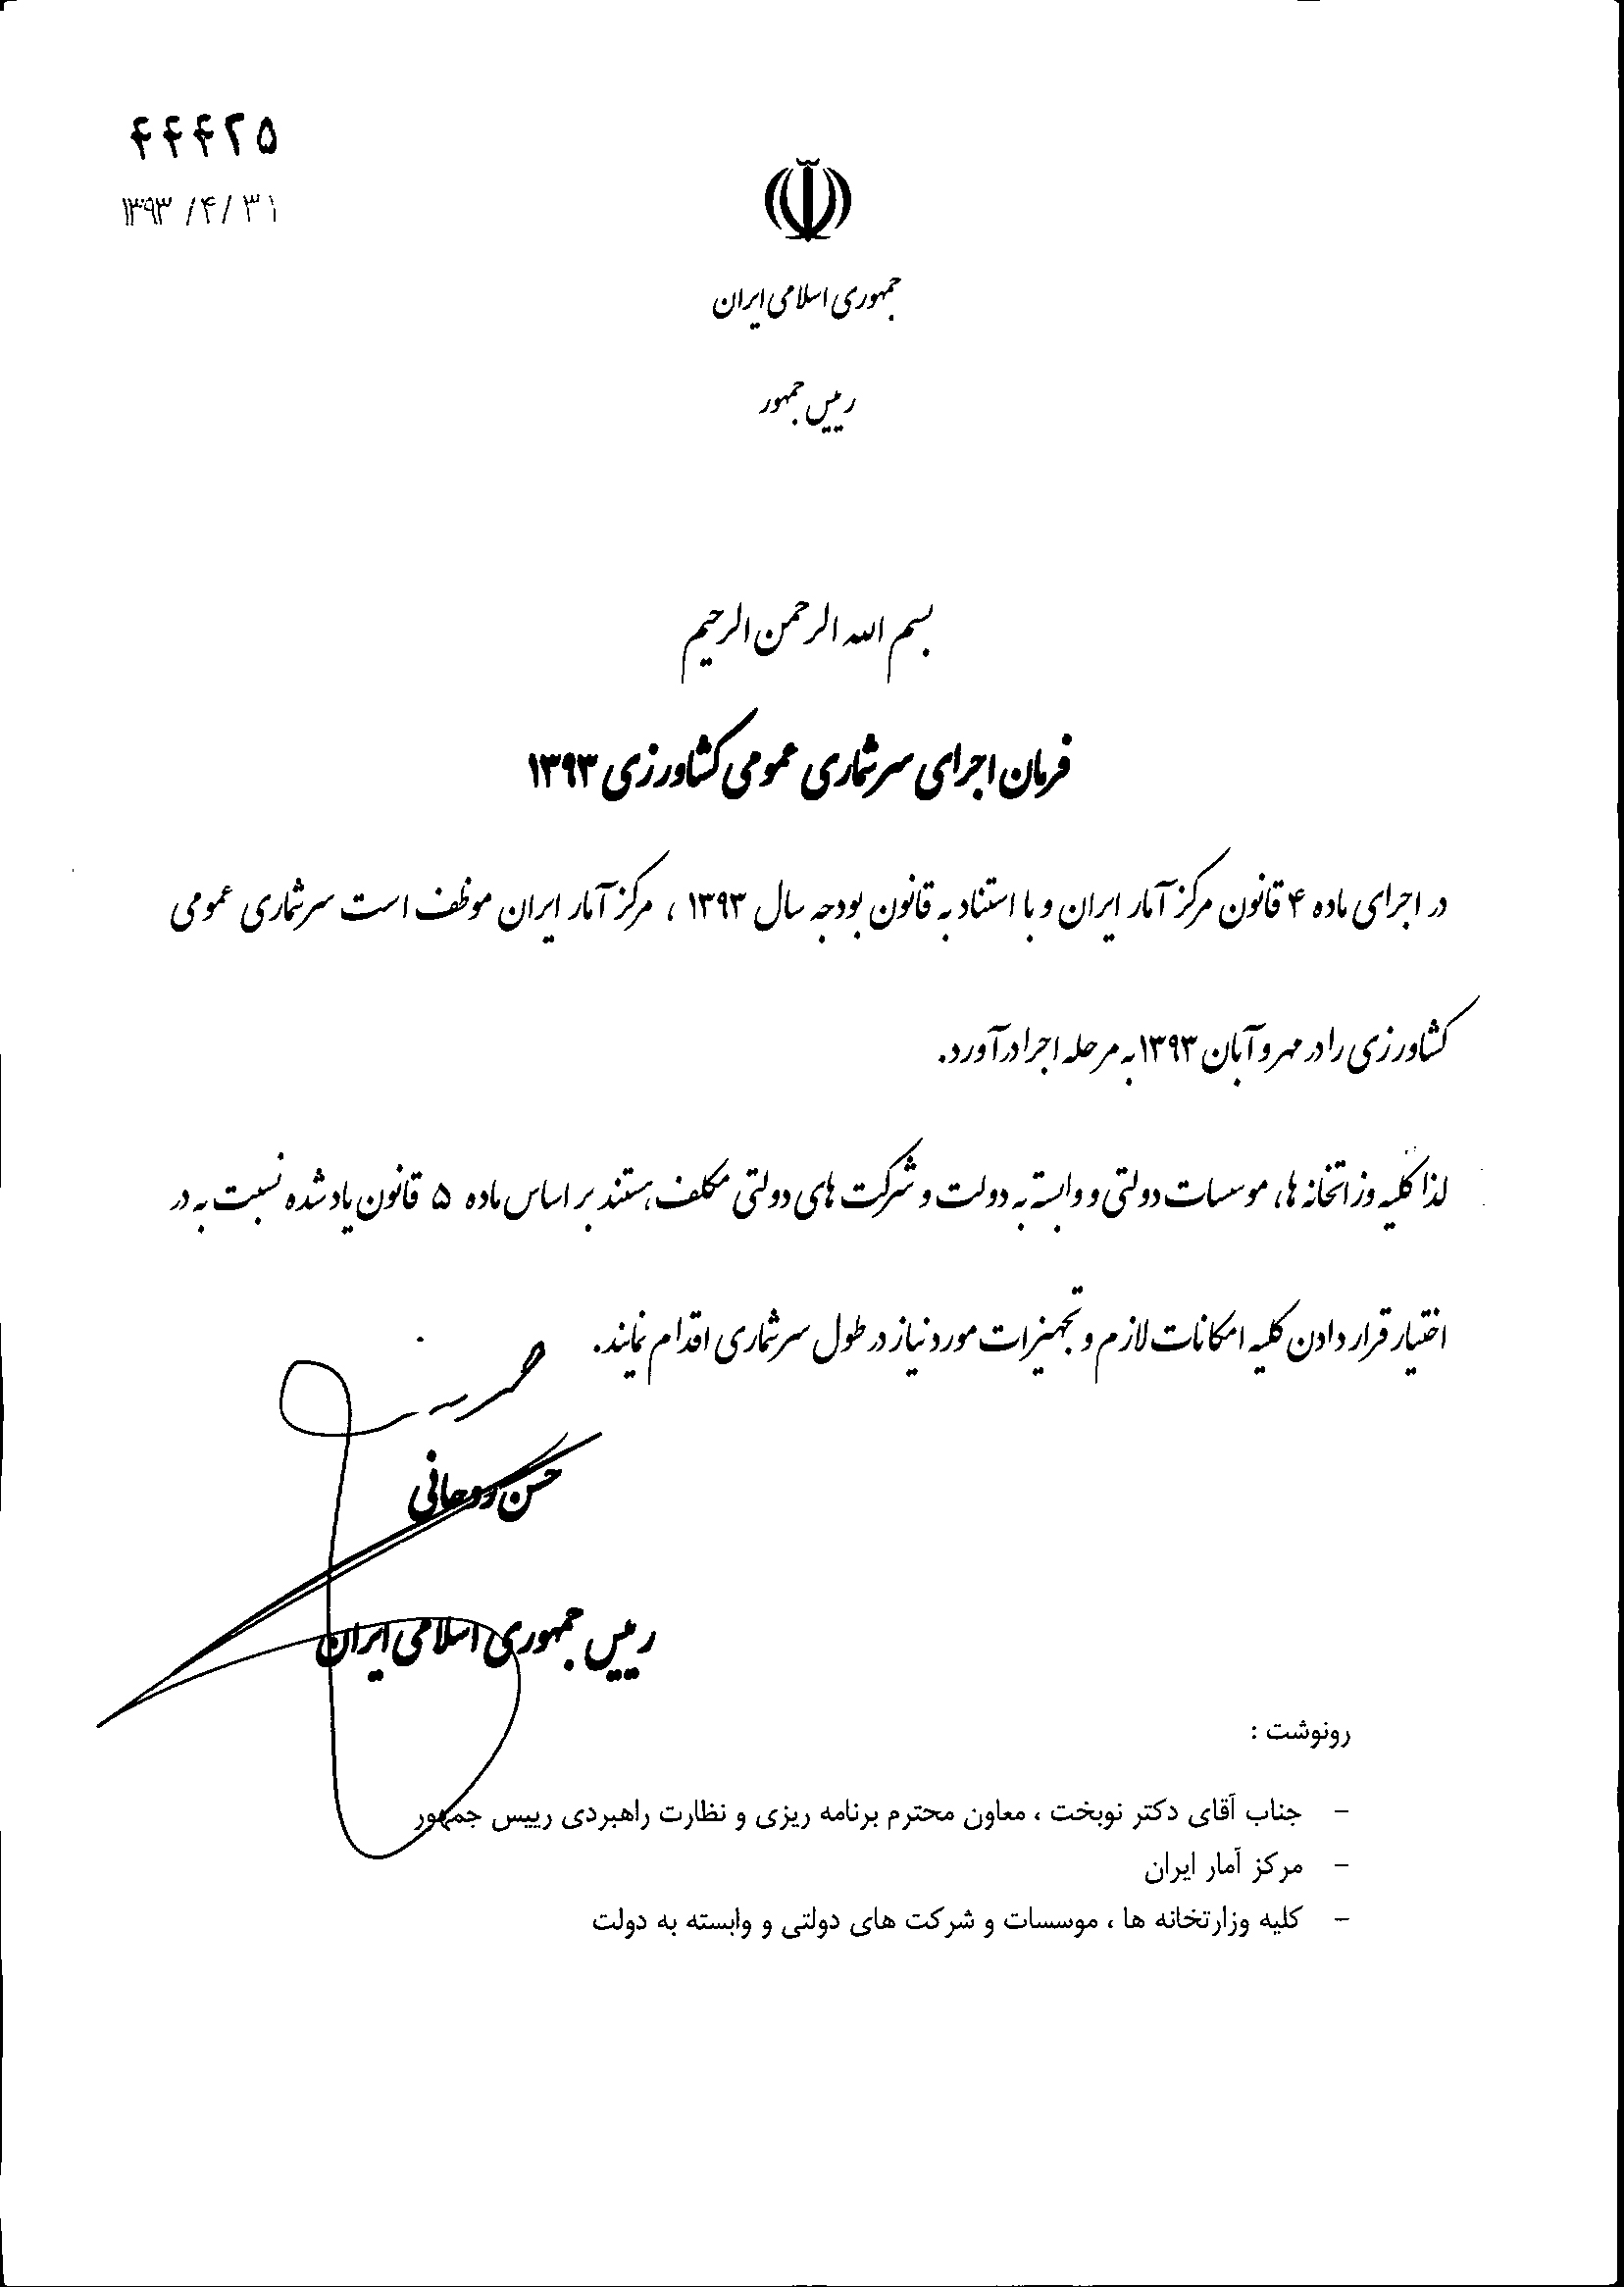 ۴۴۴۲۵
۱۳۹۳/۴/۳۱
جمهوری اسلامی ایران
رییس جمهور
بسم الله الرحمن الرحیم
فرمان اجرای سرشماری عمومی کشاورزی ۱۳۹۳
در اجرای ماده ۴ قانون مرکز آمار ایران و با استناد به قانون بودجه سال ۱۳۹۳ ، مرکز آمار ایران موظف است سرشماری عمومی
کشاورزی را در مهر و آبان ۱۳۹۳ به مرحله اجرا درآورد.
لذا کلیه وزراتخانه ها، موسسات دولتی و وابسته به دولت و شرکت های دولتی مکلف هستند بر اساس ماده ۵ قانون یاد شده نسبت به در
اختیار قرار دادن کلیه امکانات لازم و تجهیزات مورد نیاز در طول سرشماری اقدام نمایند.
حسن روحانی
رییس جمهوری اسلامی ایران
رونوشت :
- جناب آقای دکتر نوبخت ، معاون محترم برنامه ریزی و نظارت راهبردی رییس جمهور
- مرکز آمار ایران
- کلیه وزارتخانه ها ، موسسات و شرکت های دولتی و وابسته به دولت